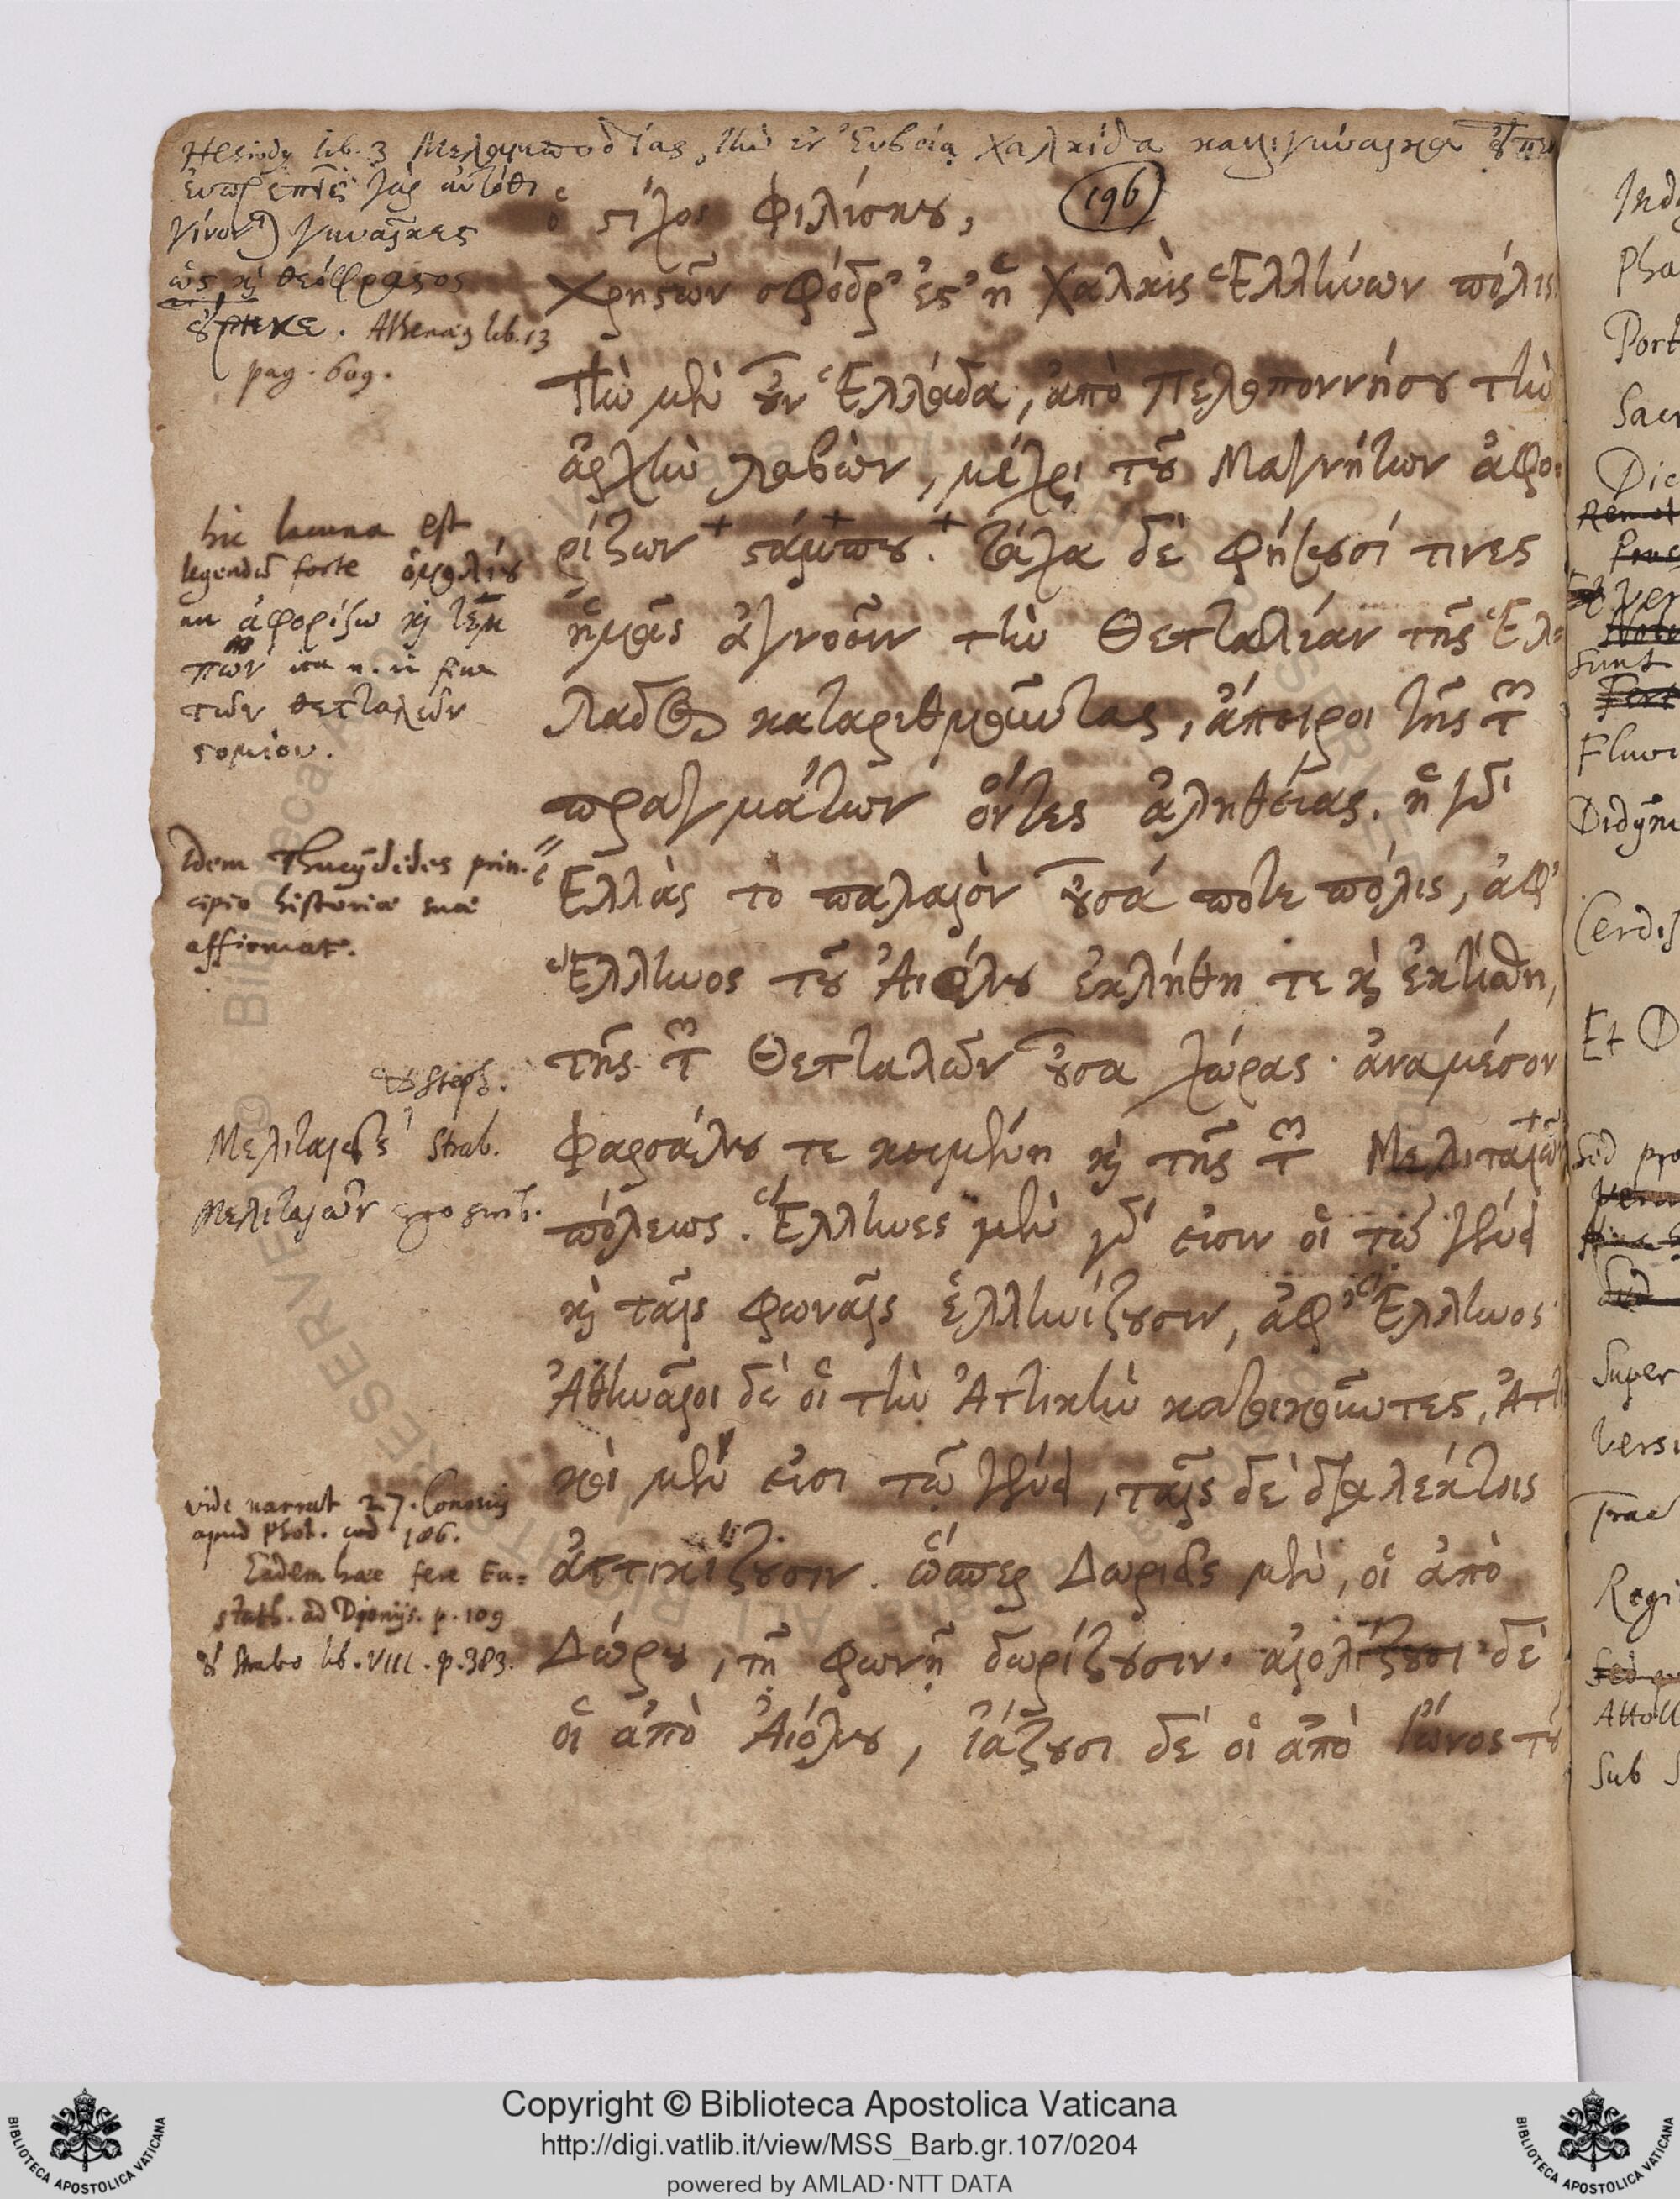 Hesiodus lib. 3 Μελαμποδίας, τὴν ἐν Εὐβοίᾳ Χαλκίδα καλλιγύναικα εἶπεν
εὐπρεπεῖς γὰρ αὐτόθι
γίνονται γυναῖκες
ὡς καὶ Θεόφραστος
εἴρηκε. Athenaeus lib. 13
pag. 609.
ὁ στίχος Φιλίσκου,
196
Χρηστῶν σφόδρ' ἐστ' ἡ Χαλκὶς Ἑλλήνων πόλις
Τὴν μὲν οὖν Ἑλλάδα, ἀπὸ Πελοποννήσου τὴν
ἀρχὴν λαβὼν, μέχρι τοῦ Μαγνήτων ἀφο-
ρίζων στόμπου. τάχα δὲ φήσουσί τινες
ἡμᾶς ἀγνοεῖν τὴν Θετταλίαν τῆς Ἑλ-
λάδος καταριθμοῦντας, ἄπειροι τῆς τῶν
πραγμάτων ὄντες ἀληθείας. ἡ γὰρ
Ἑλλὰς τὸ παλαιὸν οὖσά ποτε πόλις, ἀφ'
Ἕλληνος τοῦ Αἰόλου ἐκλήθη τε καὶ ἐκτίσθη,
τῆς τῶν Θετταλῶν οὖσα χώρας. ἀναμέσον
Φαρσάλου τε κειμένη καὶ τῆς τῶν Μελιταιέων
πόλεως. Ἕλληνες μὲν γάρ εἰσιν οἱ τῷ γένει
καὶ ταῖς φωναῖς ἑλληνίζουσιν, ἀφ' Ἕλληνος
Ἀθηναῖοι δὲ οἱ τὴν Ἀττικὴν κατοικοῦντες, Ἀττι
κοὶ μέν εἰσι τῷ γένει, ταῖς δὲ διαλέκτοις
ἀττικίζουσιν. ὥσπερ Δωριεῖς μὲν, οἱ ἀπὸ
Δώρου, τῇ φωνῇ δωρίζουσιν. αἰολίζουσι δὲ
οἱ ἀπὸ Αἰόλου, ἰάζουσι δὲ οἱ ἀπὸ Ἴωνος τοῦ
hic lacuna est
legendum forte ὁμολίου
ἀφορίζω καὶ τεμ
πῶν
τῶν θετταλῶν
στομίου.
Idem Thucydides prin-
cipio historiae suae
affirmat.
Steph.
Strab.
Μελιταιῶν
vide narrat 27. Cononis
apud Phot. cod 186.
Eadem haec fere Eu-
stath. ad Dionys. p. 109
& Strabo lib. VIII. p. 383.
Ind
Pha
Port
Sacr
Dic
sunt
Fluvi
Didym
Cerdis
Et D
Sed pro
Super
Versu
Trac
Regi
Attoll
Sub S
Copyright © Biblioteca Apostolica Vaticana
http://digi.vatlib.it/view/MSS_Barb.gr.107/0204
powered by AMLAD·NTT DATA
BIBLIOTECA APOSTOLICA VATICANA
BIBLIOTECA APOSTOLICA VATICANA